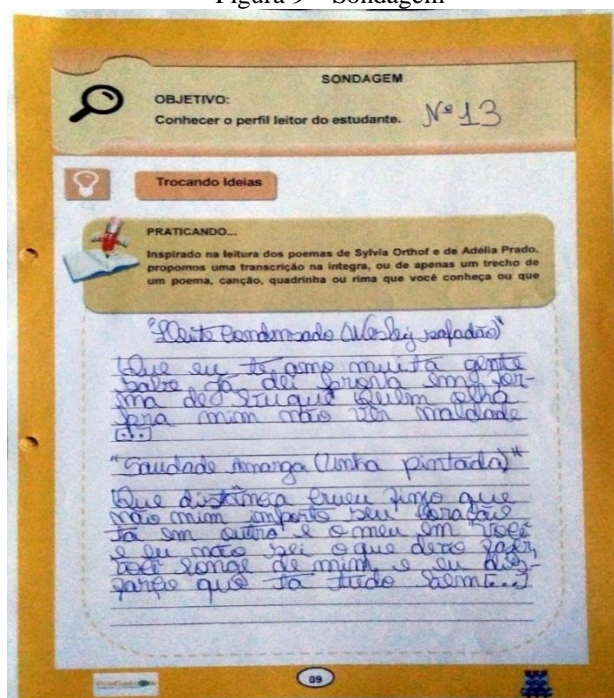 Figura 9 – Sondagem
SONDAGEM
OBJETIVO:
Conhecer o perfil leitor do estudante.
Nº 13
Trocando Ideias
PRATICANDO...
Inspirado na leitura dos poemas de Sylvia Orthof e de Adélia Prado,
propomos uma transcrição na íntegra, ou de apenas um trecho de
um poema, canção, quadrinha ou rima que você conheça ou que
"Leite Condensado (Wesley safadão)"
Que eu te amo muita gente
sabe Já dei prova em for-
ma de quem olha
para mim não ver maldade
[...]
"Saudade Amarga (Unha pintada)"
Que distância finjo que
não mim importo seu coração
ta em outro e o meu em você
e eu não sei o que devo fazer,
você longe de mim e eu dis-
farço que ta tudo bem [...]
09